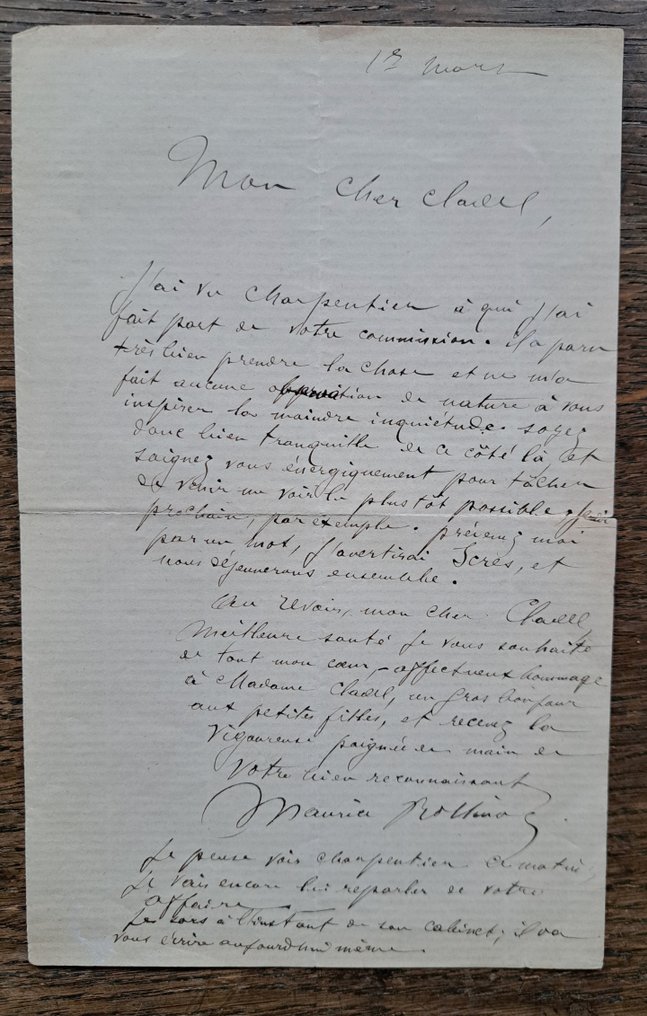 1er mars
Mon cher Cladel,
J'ai vu Charpentier à qui j'ai
fait part de votre commission. il a paru
très bien prendre la chose et ne m'a
fait aucune observation de nature à vous
inspirer la moindre inquiétude. soyez
donc bien tranquille de ce côté là, et
soignez vous énergiquement pour tâcher
de venir me voir le plus tôt possible, jeudi
prochain, par exemple. prévenez moi
par un mot, j'avertirai Scres, et
nous déjeunerons ensemble.
Au revoir, mon cher Cladel,
Meilleure santé je vous souhaite
de tout mon cœur, – affectueux hommage
à Madame Cladel, un gros bonjour
aux petites filles, et recevez la
vigoureuse poignée de main de
votre bien reconnaissant
Maurice Rollinat
Je pense voir Charpentier ce matin,
Je vais encore lui reparler de votre
affaire.
Je sors à l'instant de son cabinet; il va
vous écrire aujourd'hui même.